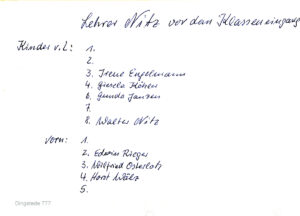 Lehrer Nitz vor dem Klasseneingang
Kinder v.l.: 1.
2.
3. Irene Engelmann
4. Gisela Höhen
6. Gunda Janzen
7.
8. Walter Nitz
vorn: 1.
2. Edwin Rieger
3. Wilfried Osterlotz
4. Horst Wölz
5.
Dingsrede ???